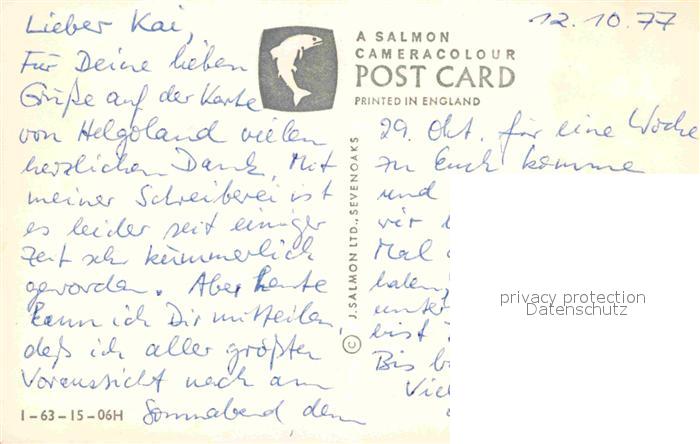 Lieber Kai,
12.10.77
Für Deine lieben
Grüße auf der Karte
von Helgoland vielen
herzlichen Dank. Mit
meiner Schreiberei ist
es leider seit einiger
Zeit sehr kümmerlich
geworden. Aber heute
kann ich Dir mitteilen,
daß ich aller größten
Voraussicht nach am
Sonnabend dem
I-63-15-06H
A SALMON
CAMERACOLOUR
POST CARD
PRINTED IN ENGLAND
© J. SALMON LTD., SEVENOAKS
29. Okt. für eine Woche
zu Euch komme
und
wir
Mal
haben,
unter
bist
Bis
privacy protection
Datenschutz